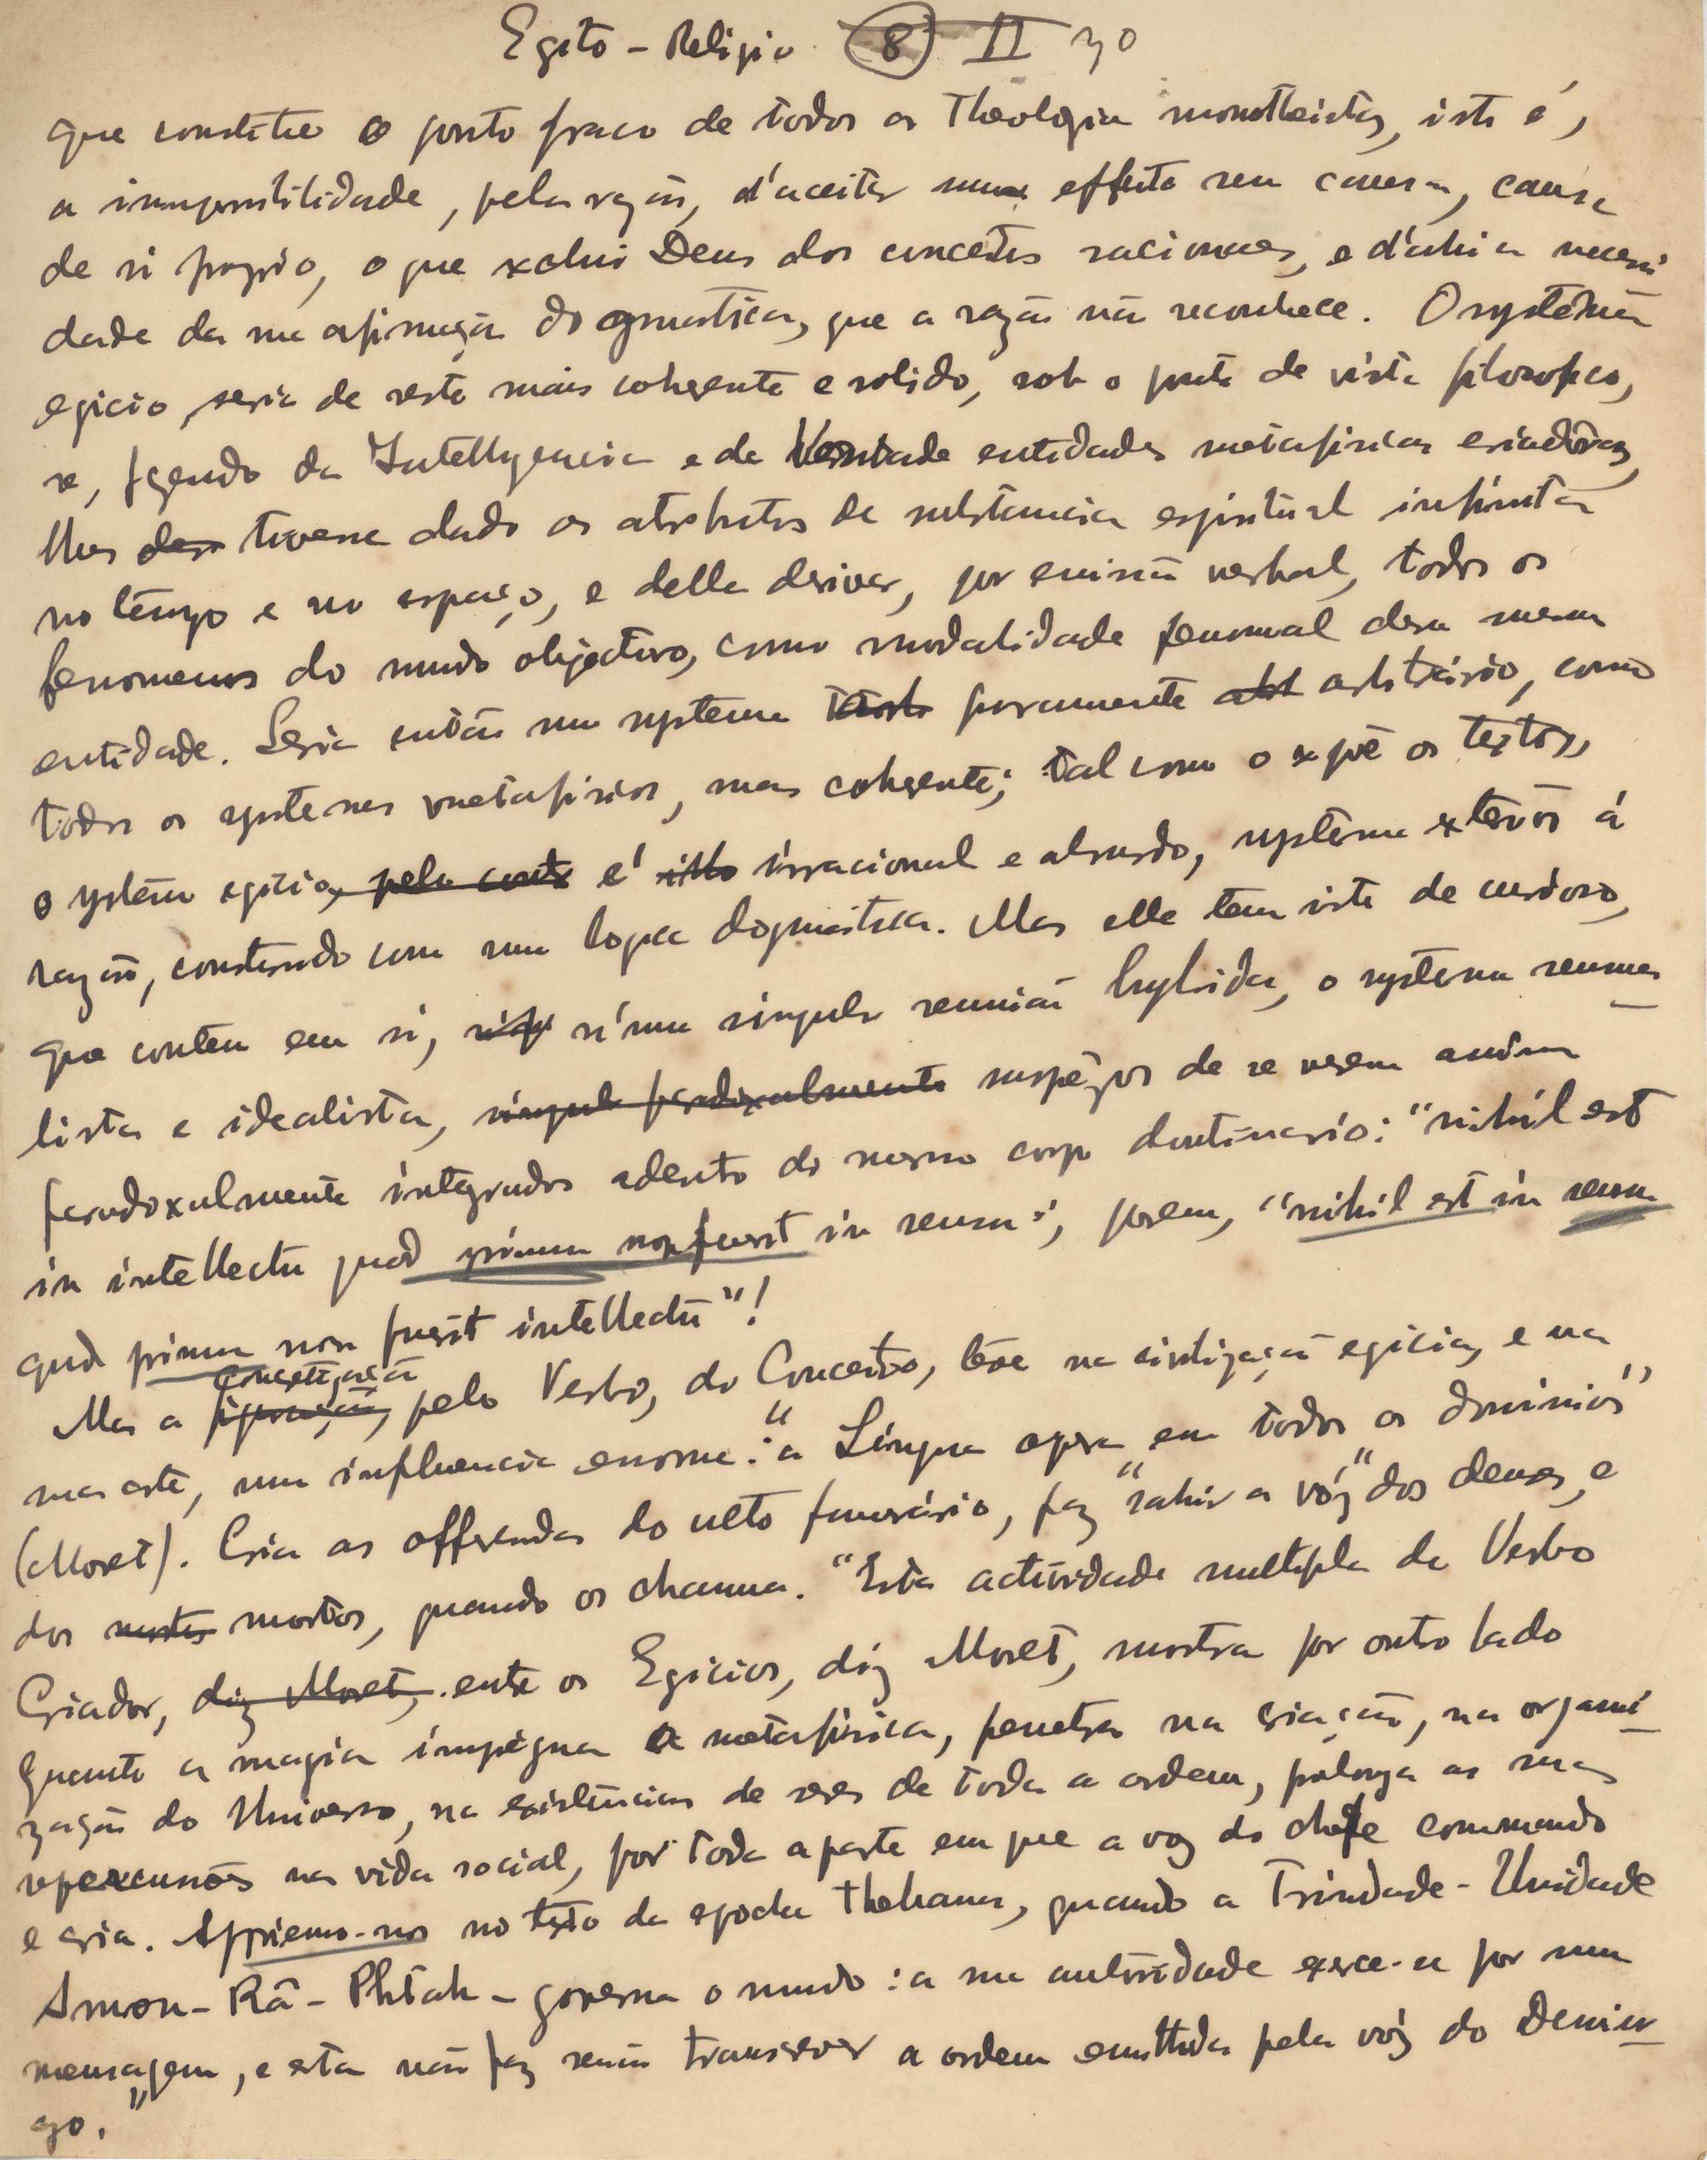 Egito - Religião 8 II 30
que constitue o ponto fraco de todas as Theologias monotheistas, isto é,
a impossibilidade, pela razão, d'aceitar um effeito sem causa, causa
de si proprio, o que exclui Deus dos conceitos racionaes, e d'ahi a necessi
dade da sua afirmação dogmatica, que a razão não reconhece. O systema
egicio, seria de resto mais coherente e solido, sob o ponto de vista filosofico,
se, fazendo da Intelligencia e da Verdade entidades metafisicas criadoras,
lhes tivesse dado os atributos de substancia espiritual infinita
no tempo e no espaço, e della derivar, por emissão verbal, todos os
fenomenos do mundo objectivo, como modalidade fenomenal dessa mesma
entidade. Seria então um systema puramente arbitrário, como
todos os systemas metafisicos, mas coherente; tal como o expõe os textos,
o systema egicio é irracional e absurdo, systema exterior á
razão, construido com uma logica dogmatica. Mas elle tem isto de curioso,
que contem em si, n'uma singular reunião hybrida, o systema sensua-
lista e idealista, surpêzos de se verem assim
paradoxalmente integrados adentro do mesmo corpo doutrinario: "nihil est
in intellectu quod primum non fuerit in sensu"; porem, "nihil est in sensu
quod primum non fuerit intellectu"!
Mas a concetização pelo Verbo, do Conceito, teve na civilização egicia, e na
sua arte, uma influencia enorme: "a Lingua opera em todos os dominios"
(Moret). Cria as offrendas do culto funerário, faz "sahir a vóz" dos deuses, e
dos mortos, quando os chama. "Esta actividade multipla do Verbo
Criador, entre os Egicios, diz Moret, mostra por outro lado
quanto a magia impregna a metafisica, penetra na criação, na organi-
zação do Universo, na existencias de seres de toda a ordem, prolonga as suas
repercussões na vida social, por toda a parte em que a voz do chefe commanda
e cria. Appriemo-nos no texto da epoca thebana, quando a Trindade-Unidade
Amon-Râ-Phtah - governa o mundo: a sua autoridade exerce-se por uma
mensagem, e esta não faz senão transcrever a ordem emittida pela vóz do Demiur-
go."